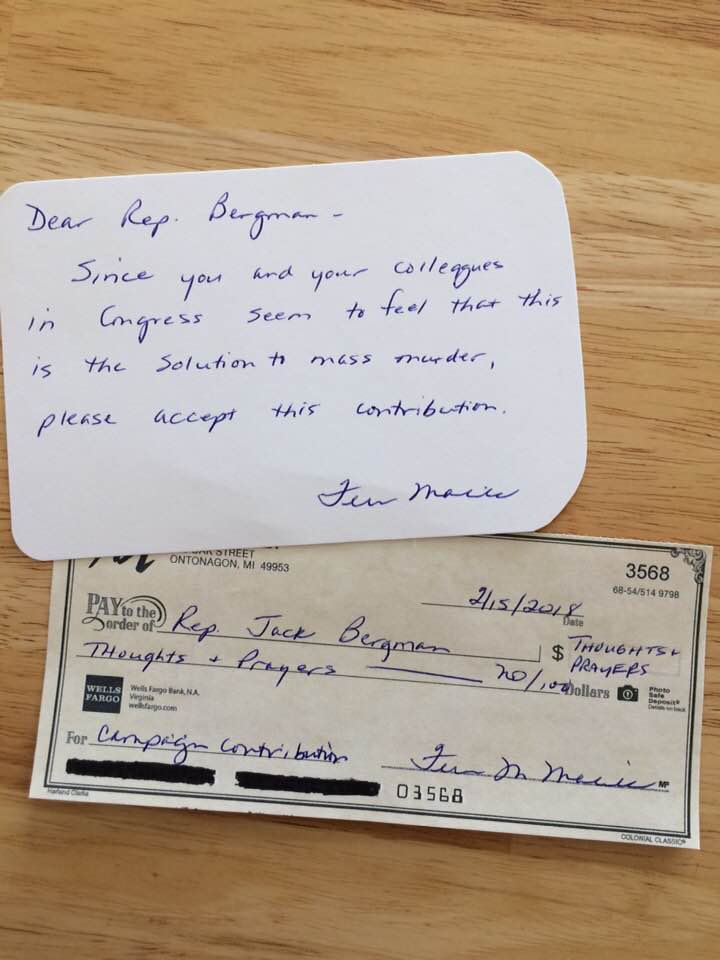 Dear Rep. Bergman -
Since you and your colleagues
in Congress seem to feel that this
is the solution to mass murder,
please accept this contribution.
STREET
ONTONAGON, MI 49953
3568
68-54/514 9798
2/15/2018
Date
PAY to the
order of
Rep. Jack Bergman
$ THOUGHTS +
PRAYERS
Thoughts + Prayers
Dollars
Photo
Safe
Deposit®
Details on back
WELLS
FARGO
Wells Fargo Bank, N.A.
Virginia
wellsfargo.com
For Campaign Contribution
MP
03568
Harland Clarke
COLONIAL CLASSIC®